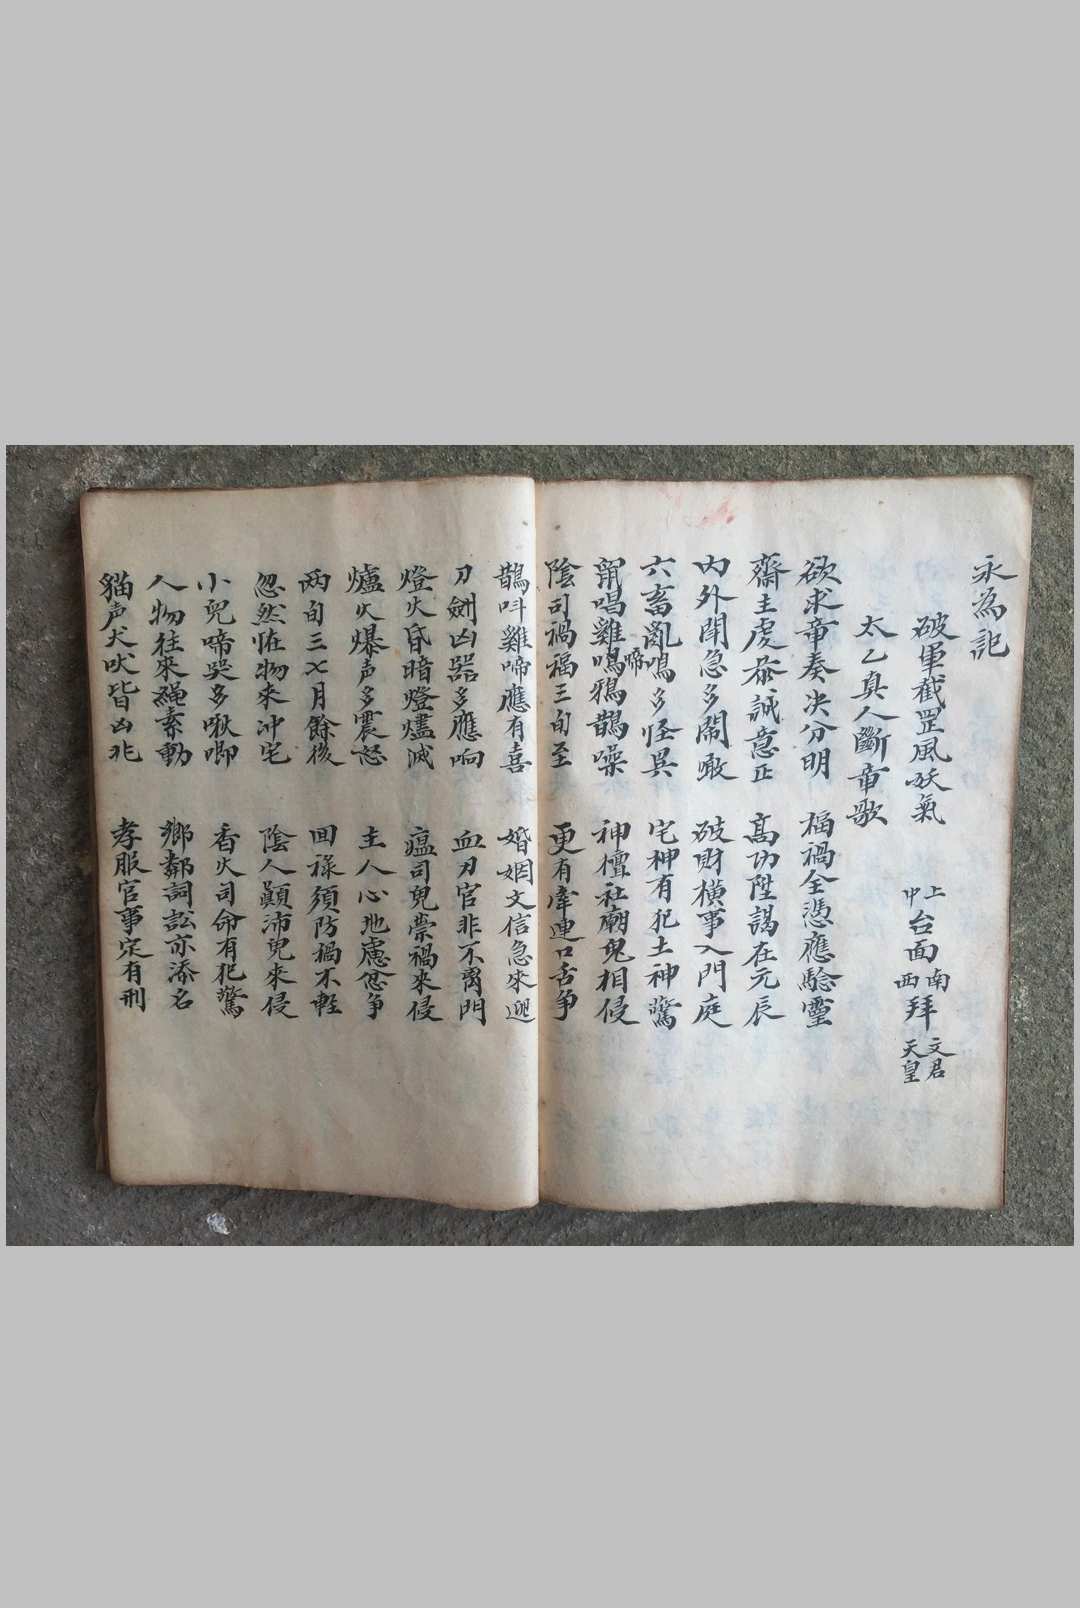 永為記
破軍截罡風妖氣 上中台面南西拜 文君天皇
太乙真人斷章歌
欲求章奏决分明 福禍全憑應驗靈
齋主虔恭誠意正 高功陞謁在元辰
内外聞急多鬧噉 破財橫事入門庭
六畜亂鳴多怪異 宅神有犯土神驚
啼
唱雞鳴鴉鵲噪 神檀社廟鬼相侵
陰司禍福三旬至 更有牽連口舌争
鵲呌雞啼應有喜 婚姻文信急來迎
刀劍凶器多應响 血刃官非不离門
燈火昏暗燈燼滅 瘟司鬼祟禍來侵
爐火爆声多震怒 主人心地慮忿争
两旬三七月餘後 回祿須防禍不輕
忽然怪物来冲宅 陰人顛沛鬼來侵
小兒啼哭多啾唧 香火司命有犯驚
人物往來繩索動 鄉鄰詞訟亦添名
貓声犬吠皆凶兆 孝服官事定有刑